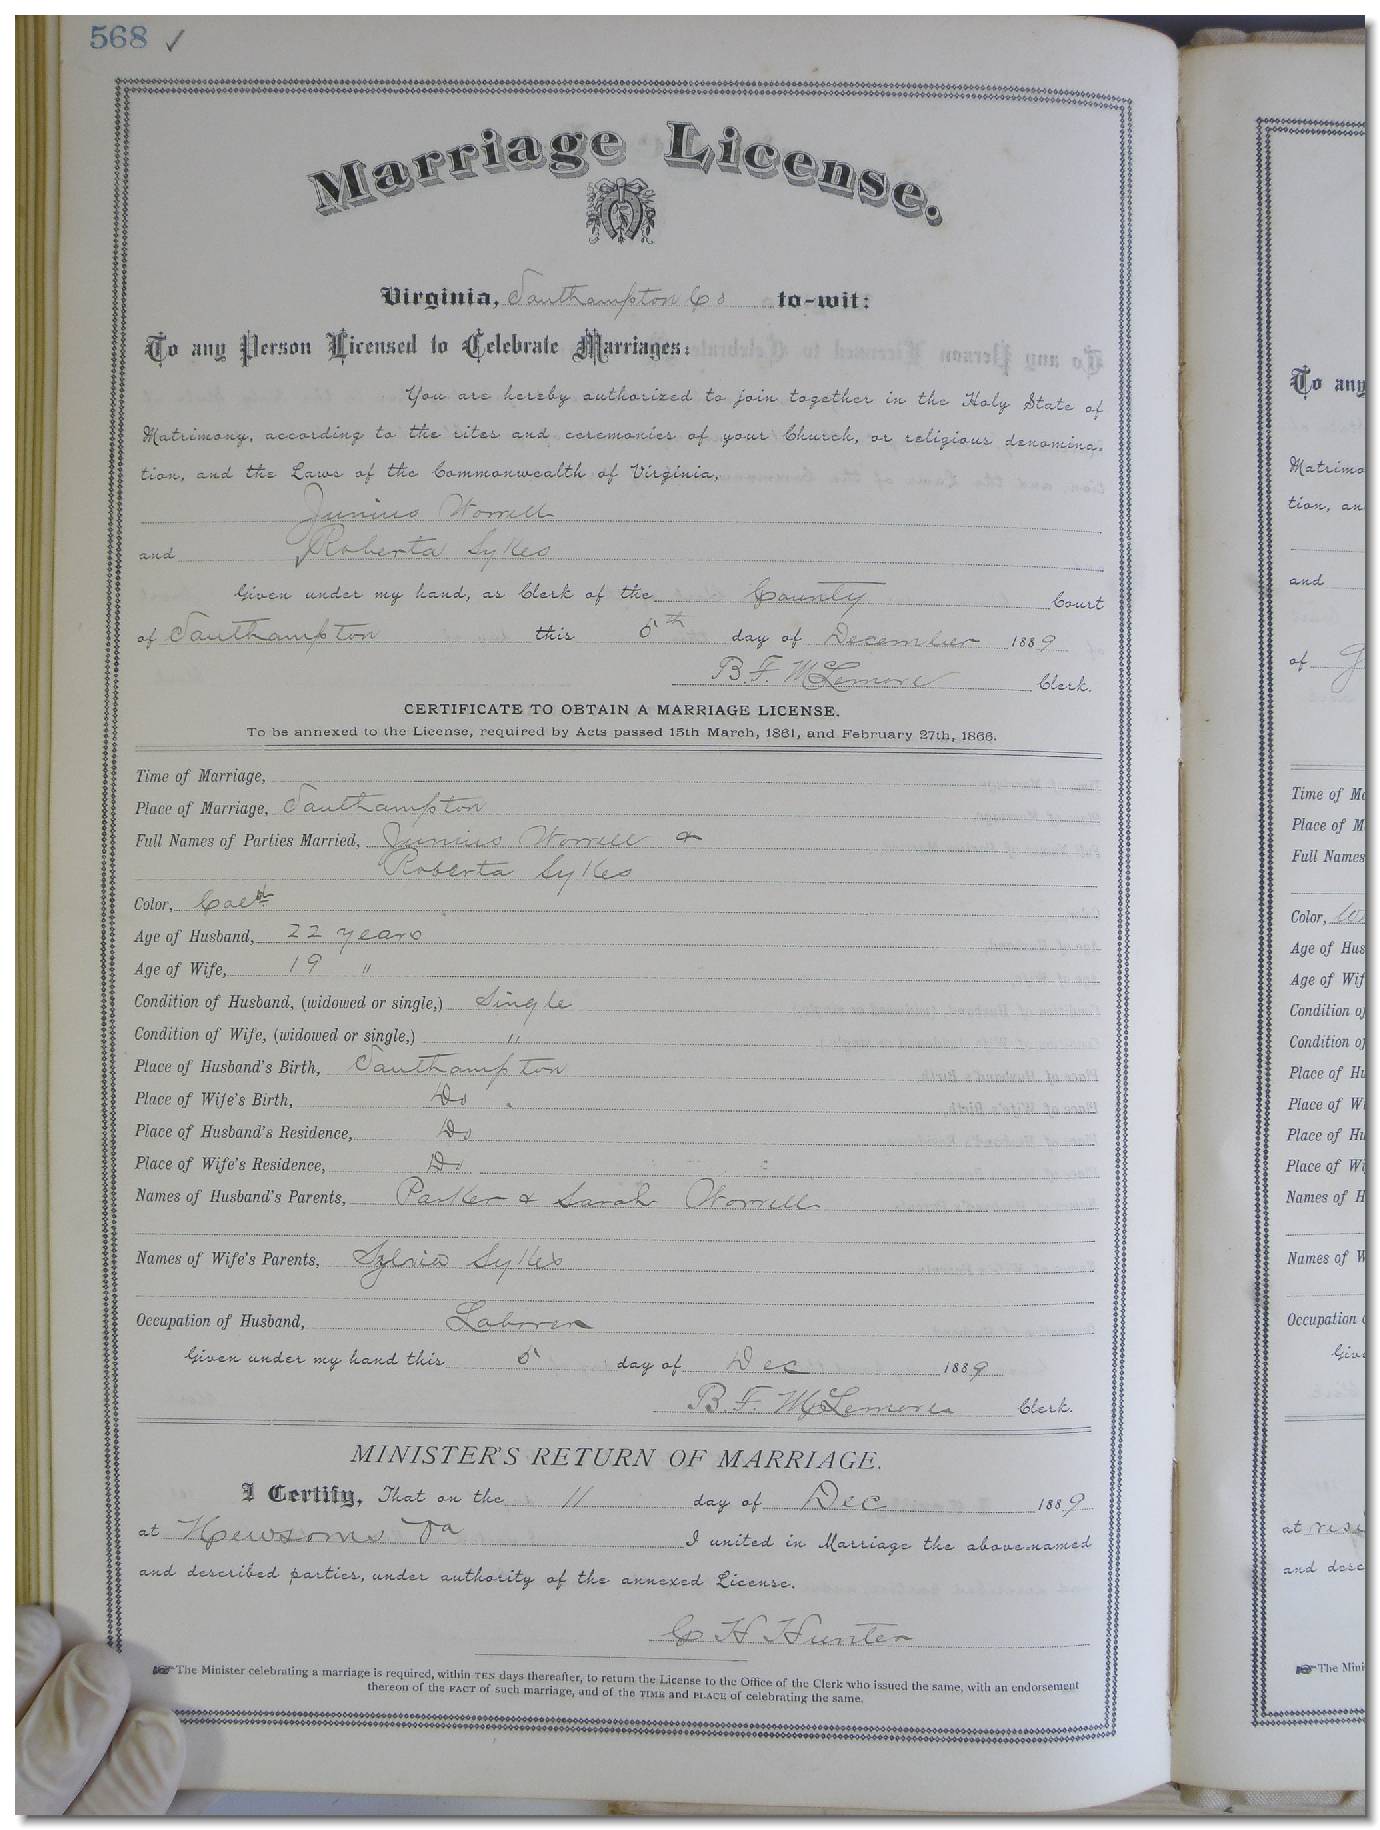 568 ✓
Marriage License.
Virginia, Southampton Co to-wit:
To any Person Licensed to Celebrate Marriages:
You are hereby authorized to join together in the Holy State of
Matrimony, according to the rites and ceremonies of your Church, or religious denomina-
tion, and the Laws of the Commonwealth of Virginia,
Junius Worrell
and Roberta Sykes
Given under my hand, as Clerk of the County Court
of Southampton this 5th day of December 1889
B. F. McLemore Clerk.
CERTIFICATE TO OBTAIN A MARRIAGE LICENSE.
To be annexed to the License, required by Acts passed 15th March, 1861, and February 27th, 1866.
Time of Marriage,
Place of Marriage, Southampton
Full Names of Parties Married, Junius Worrell &
Roberta Sykes
Color, Cold
Age of Husband, 22 years
Age of Wife, 19 "
Condition of Husband, (widowed or single,) Single
Condition of Wife, (widowed or single,) "
Place of Husband's Birth, Southampton
Place of Wife's Birth, Do
Place of Husband's Residence, Do
Place of Wife's Residence, Do
Names of Husband's Parents, Parker & Sarah Worrell
Names of Wife's Parents, Sylvia Sykes
Occupation of Husband, Laborer
Given under my hand this 5 day of Dec 1889
B. F. McLemore Clerk.
MINISTER'S RETURN OF MARRIAGE.
I Certify, That on the 11 day of Dec 1889
at Newsoms Va I united in Marriage the above-named
and described parties, under authority of the annexed License.
C H Hunter
☞ The Minister celebrating a marriage is required, within TEN days thereafter, to return the License to the Office of the Clerk who issued the same, with an endorsement
thereon of the FACT of such marriage, and of the TIME and PLACE of celebrating the same.
To any
Matrimo
tion, an
and
of
Time of Ma
Place of M
Full Names
Color, W
Age of Hus
Age of Wif
Condition o
Condition o
Place of Hu
Place of W
Place of Hu
Place of Wi
Names of H
Names of W
Occupation o
Give
at resi
and desc
☞ The Mini